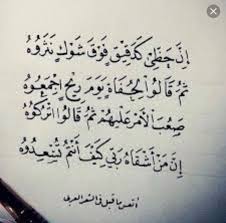 إِنَّ حَظِّي كَدَقِيقٍ فَوْقَ شَوْكٍ نَثَرُوهُ
ثُمَّ قَالُوا لِحُفَاةٍ يَوْمَ رِيحٍ اجْمَعُوهُ
صَعُبَ الأَمْرُ عَلَيْهِمْ ثُمَّ قَالُوا اتْرُكُوهُ
إِنَّ مَنْ أَشْقَاهُ رَبِّي كَيْفَ أَنْتُمْ تُسْعِدُوهُ
أتعس ما قيل في الشعر العربي